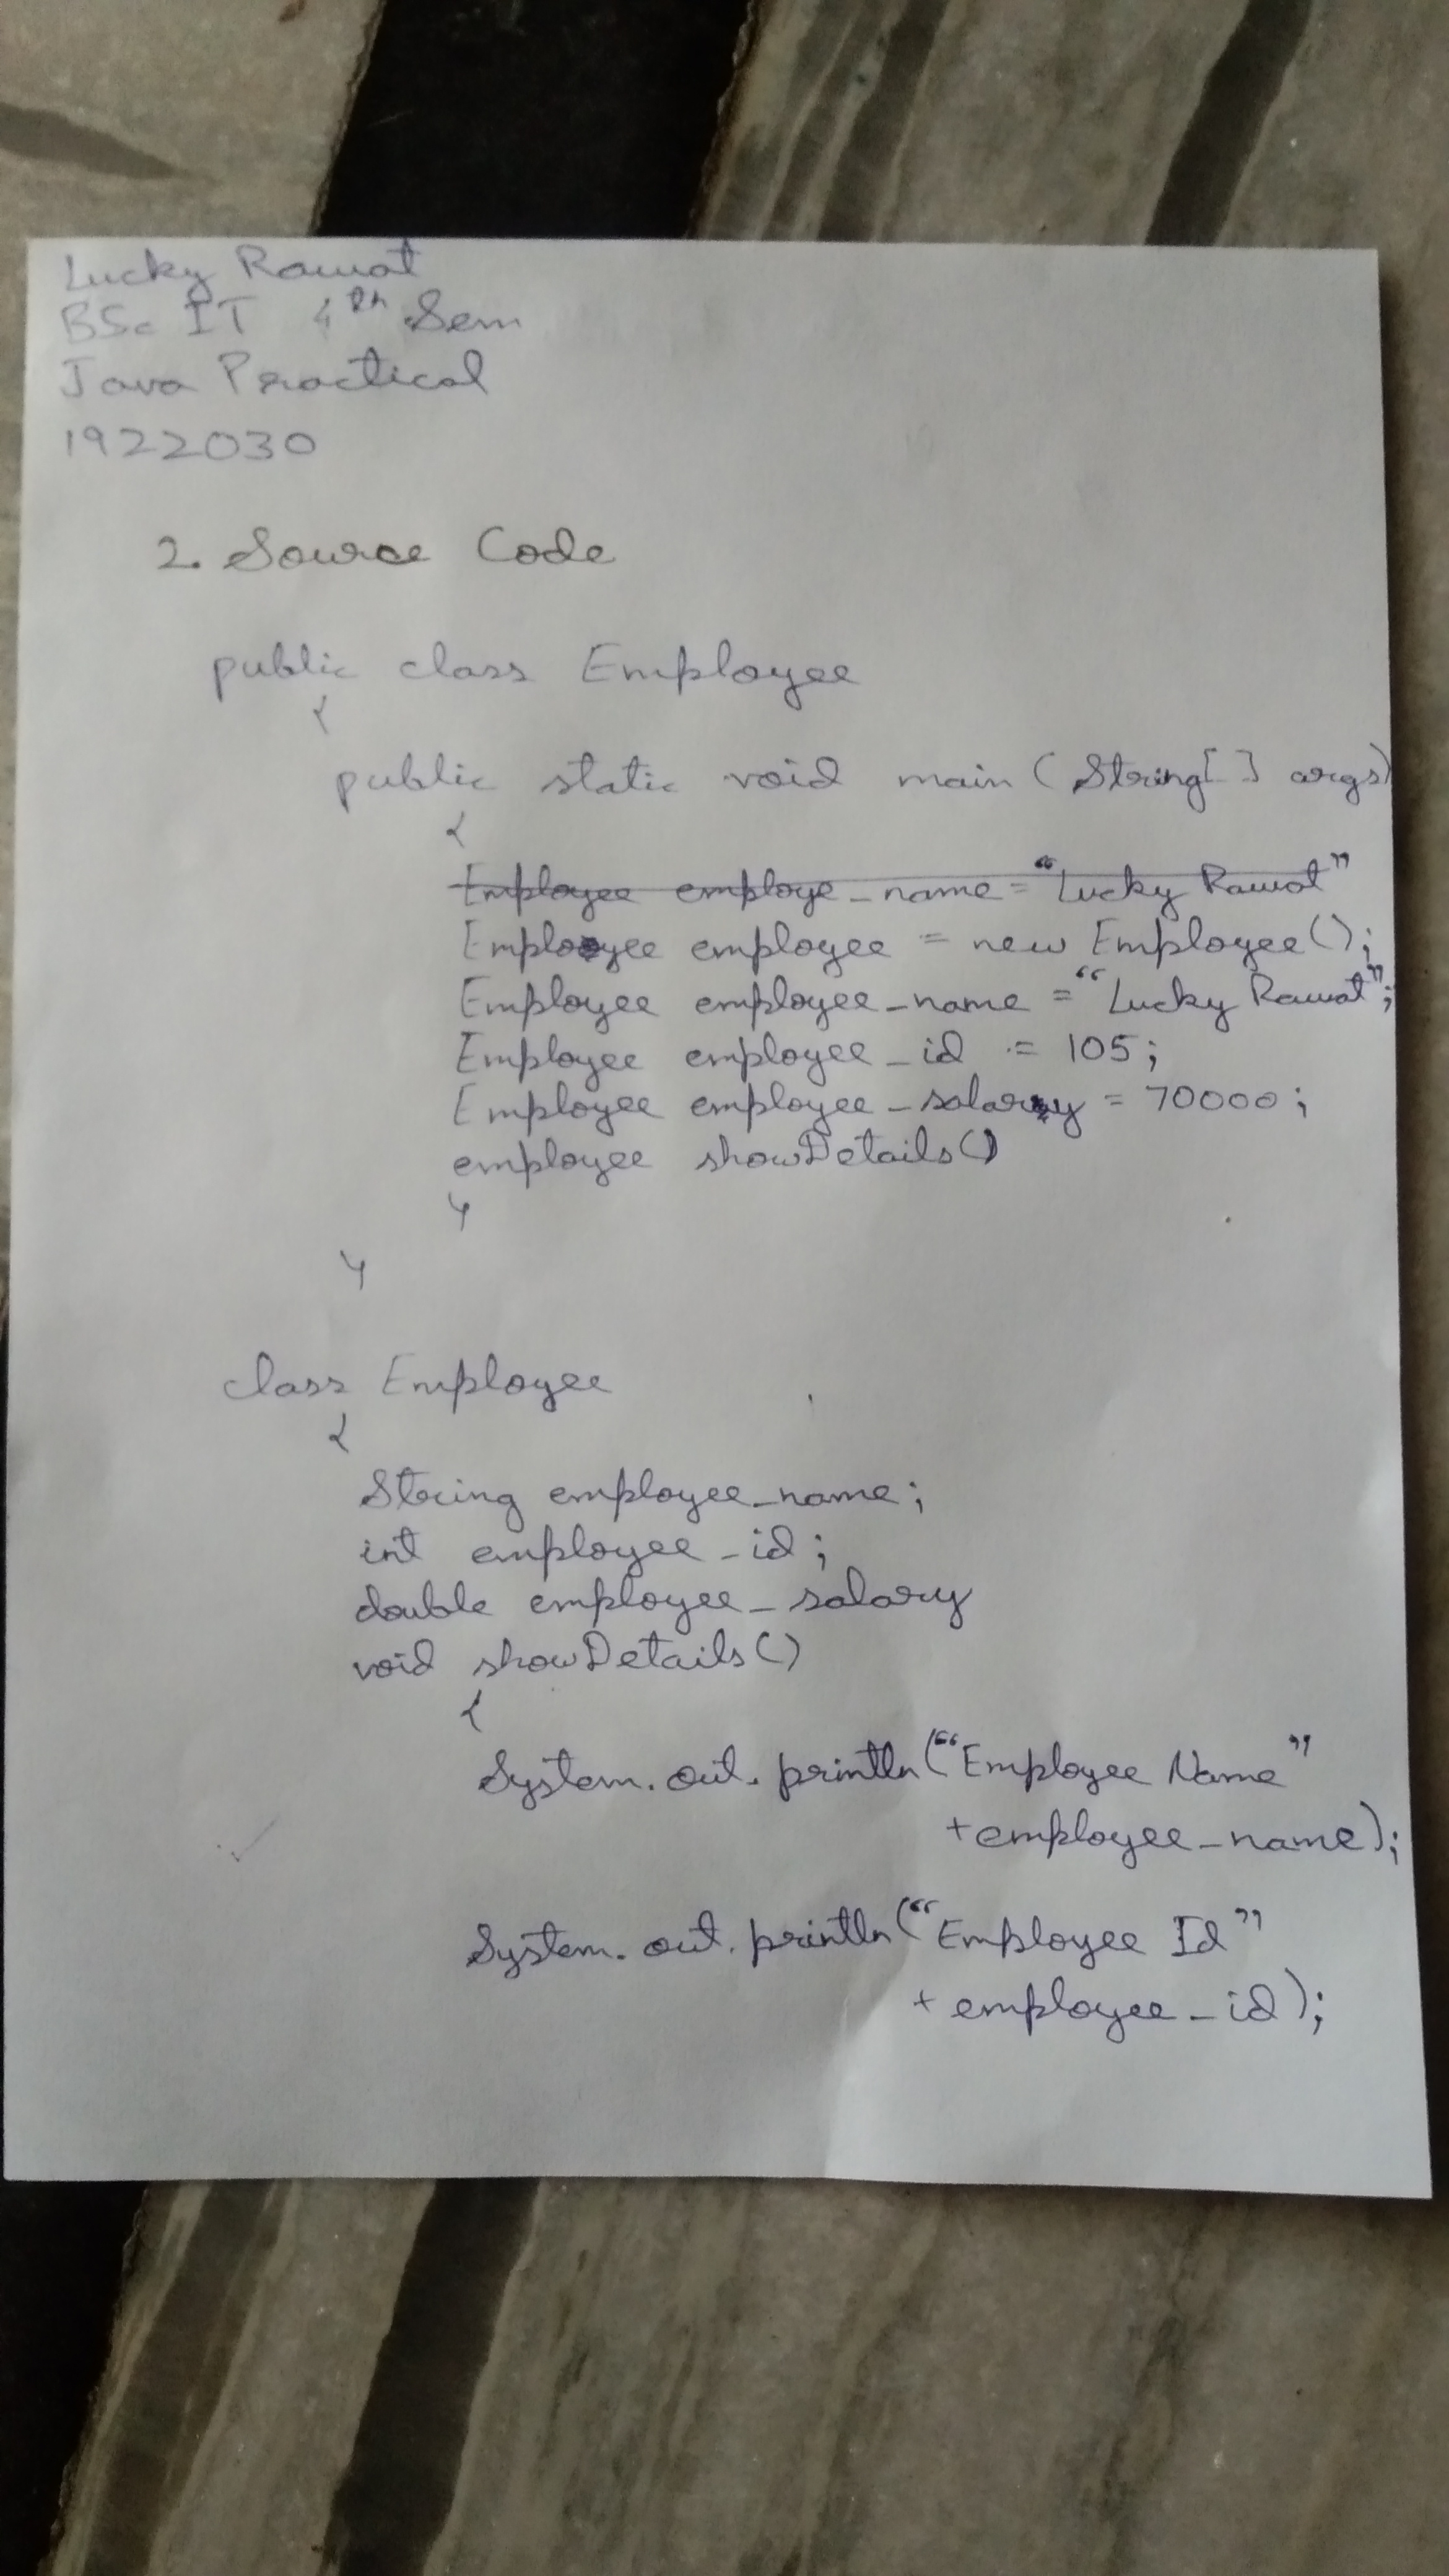 Lucky Rawat
BSc IT 4th Sem
Java Practical
1922030
2. Source Code
public class Employee
{
public static void main (String[ ] args)
{
Employee employe_name = "Lucky Rawat"
Employee employee = new Employee();
Employee employee_name = "Lucky Rawat";
Employee employee_id = 105;
Employee employee_salary = 70000;
employee showDetails()
}
}
class Employee
{
String employee_name;
int employee_id;
double employee_salary
void showDetails()
{
System.out.println("Employee Name"
+employee_name);
System.out.println("Employee Id"
+ employee_id);